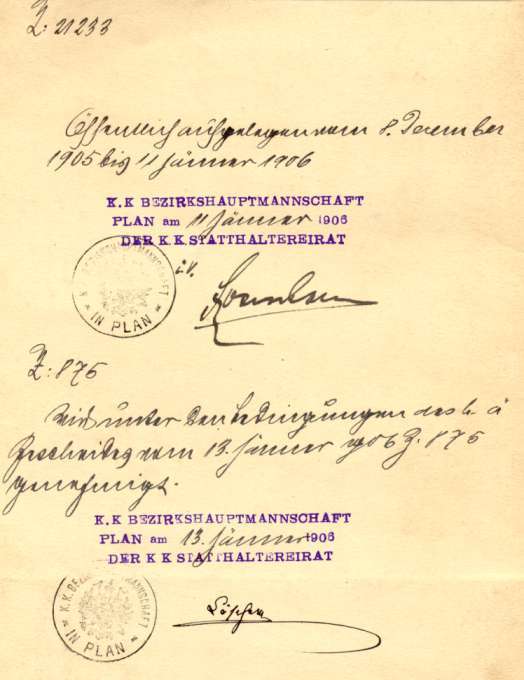 Z: 21233
Öffentlich aufgelegen vom 8. December
1905 bis 11 Jänner 1906
K.K BEZIRKSHAUPTMANNSCHAFT
PLAN am 11 Jänner 1906
DER K.K. STATTHALTEREIRAT
i.V.
K.K. BEZIRKSHAUPTMANNSCHAFT
* IN PLAN *
Z: 875
Wird unter den Bedingungen des h. ä
Bescheides vom 13. Jänner 1906 Z. 875
genehmigt.
K.K BEZIRKSHAUPTMANNSCHAFT
PLAN am 13. Jänner 1906
DER K K STATTHALTEREIRAT
K.K. BEZIRKSHAUPTMANNSCHAFT
* IN PLAN *